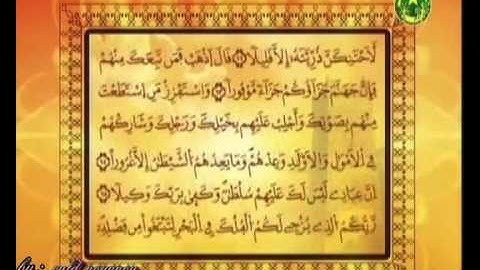 لَأَحْتَنِكَنَّ ذُرِّيَّتَهُ إِلَّا قَلِيلًا ﴿٦٢﴾ قَالَ اذْهَبْ فَمَن تَبِعَكَ مِنْهُمْ
فَإِنَّ جَهَنَّمَ جَزَاؤُكُمْ جَزَاءً مَّوْفُورًا ﴿٦٣﴾ وَاسْتَفْزِزْ مَنِ اسْتَطَعْتَ
مِنْهُم بِصَوْتِكَ وَأَجْلِبْ عَلَيْهِم بِخَيْلِكَ وَرَجِلِكَ وَشَارِكْهُمْ
فِي الْأَمْوَالِ وَالْأَوْلَادِ وَعِدْهُمْ وَمَا يَعِدُهُمُ الشَّيْطَانُ إِلَّا غُرُورًا ﴿٦٤﴾
إِنَّ عِبَادِي لَيْسَ لَكَ عَلَيْهِمْ سُلْطَانٌ وَكَفَى بِرَبِّكَ وَكِيلًا ﴿٦٥﴾
رَّبُّكُمُ الَّذِي يُزْجِي لَكُمُ الْفُلْكَ فِي الْبَحْرِ لِتَبْتَغُوا مِن فَضْلِهِ